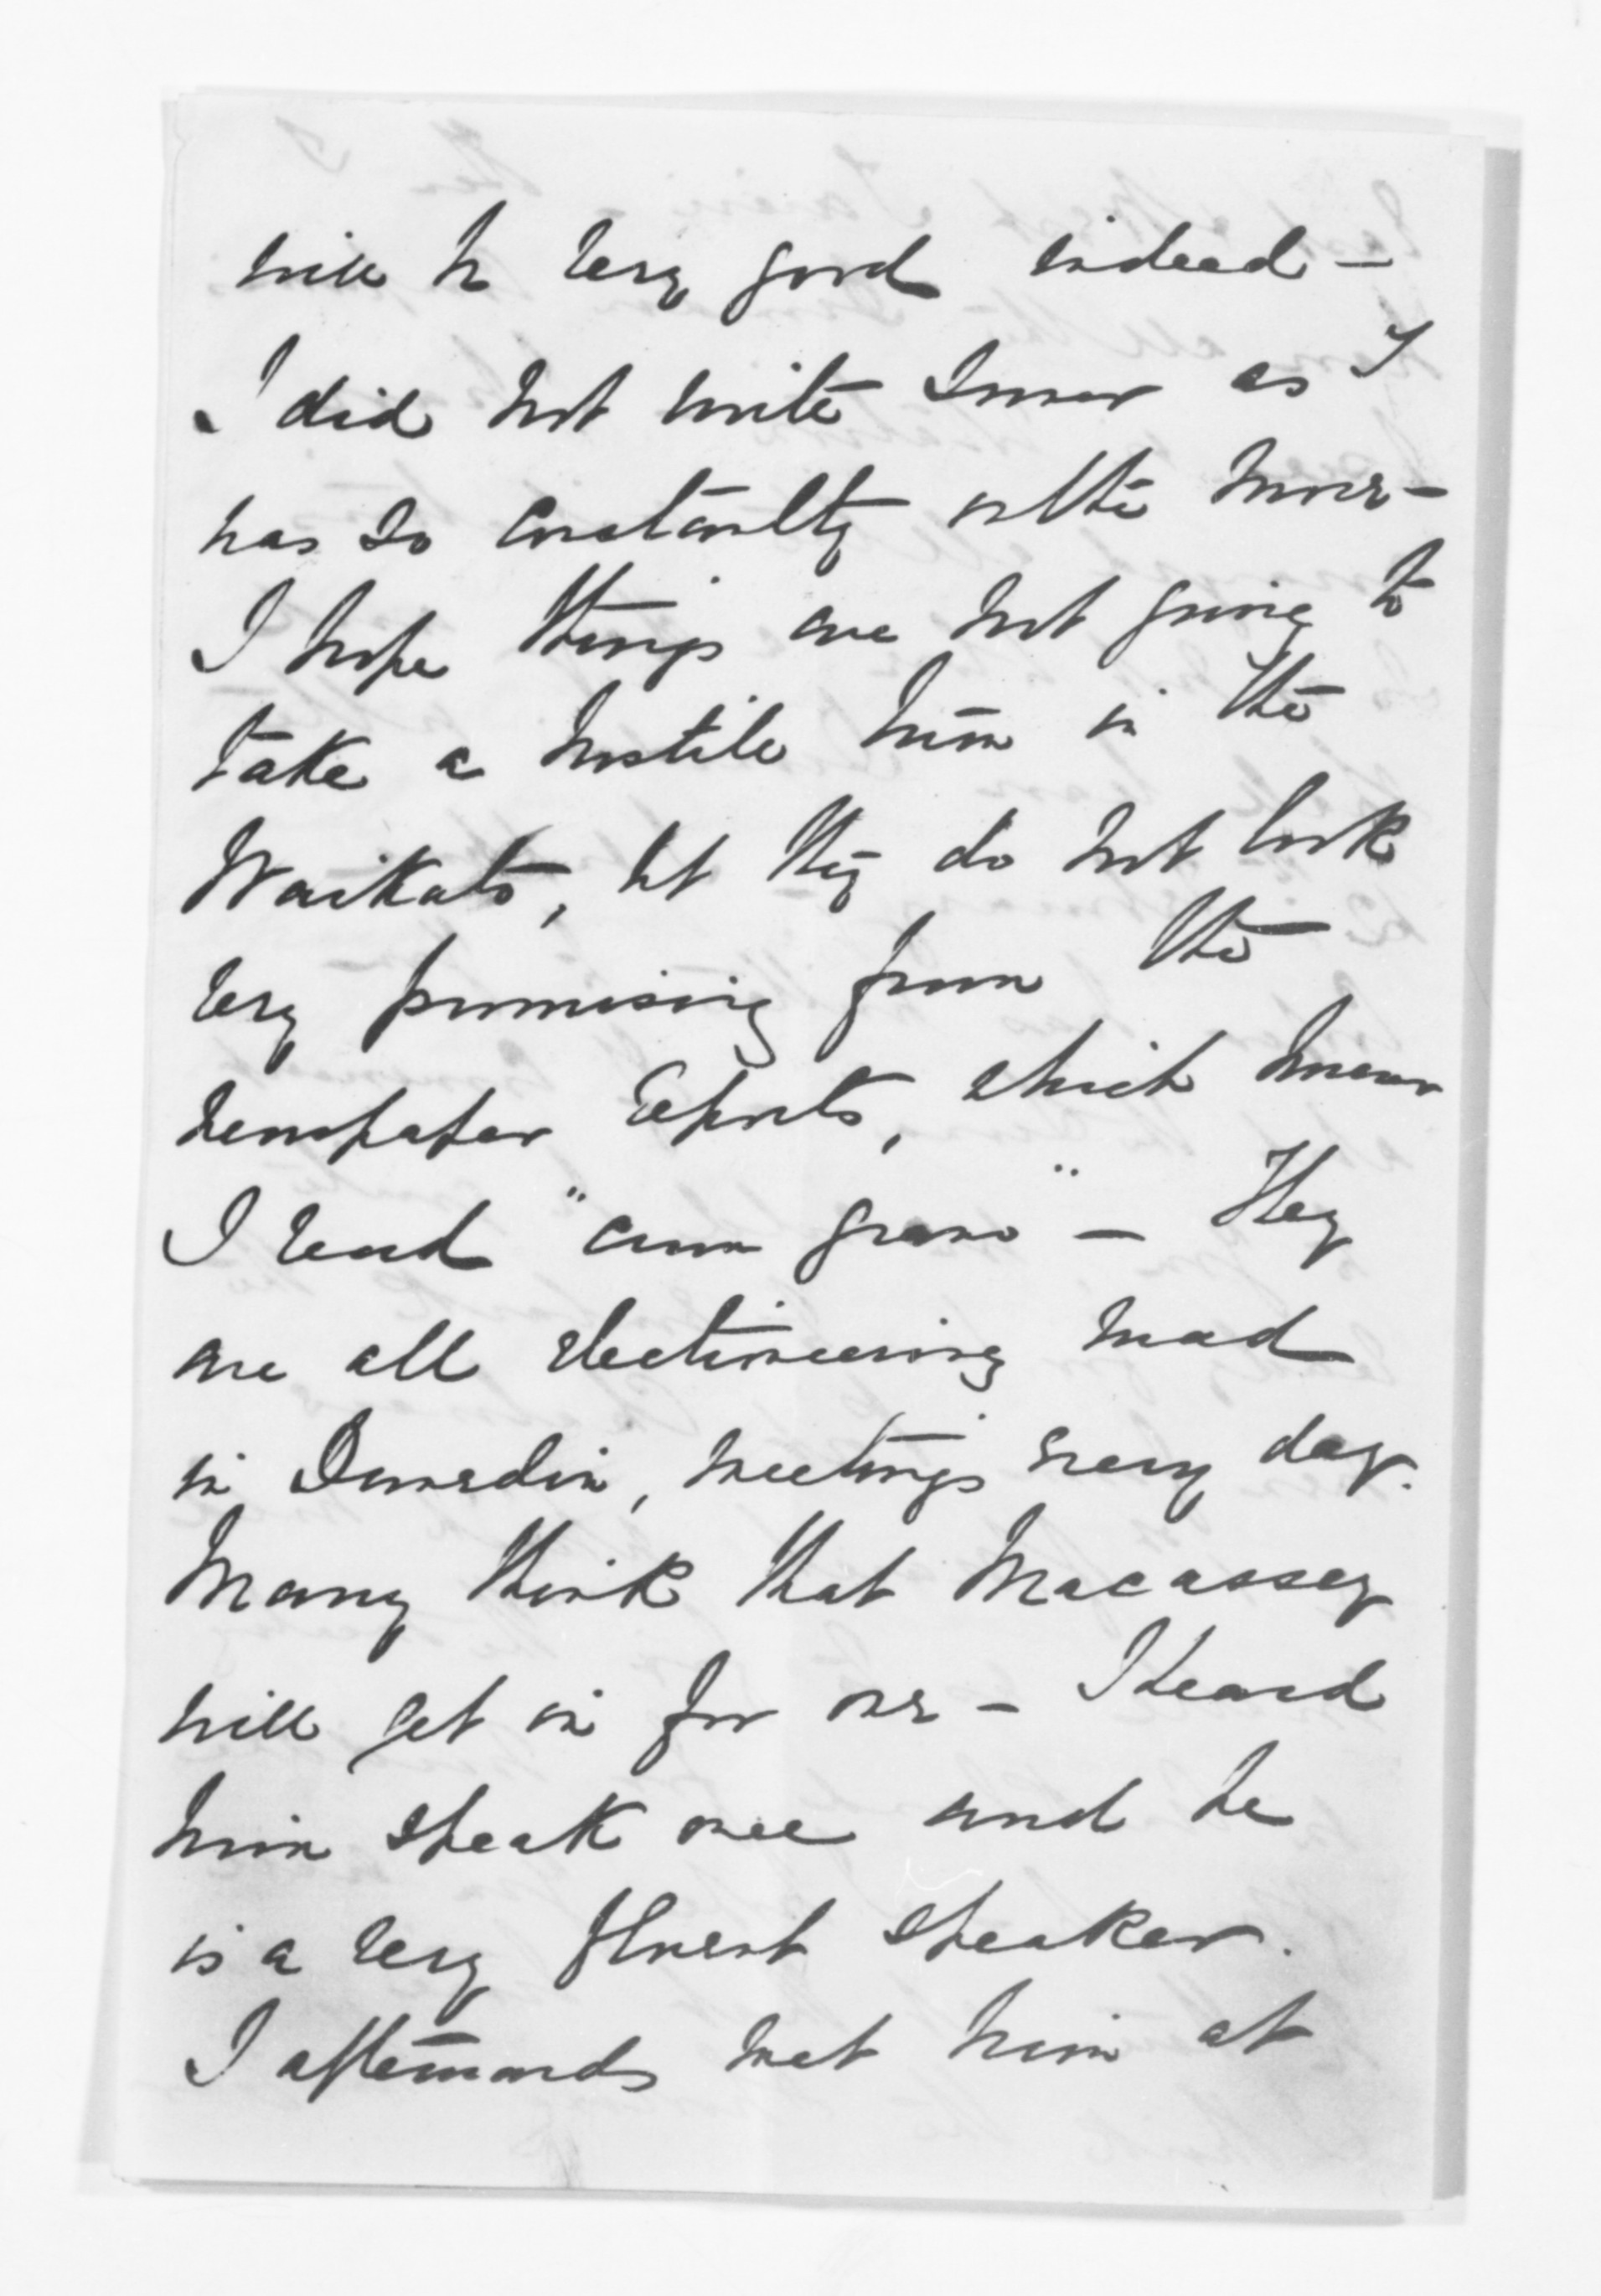 will be very good indeed –
I did not write sooner as I
was so constantly on the move –
I hope things are not going to
take a hostile turn in the
Waikato, but they do not look
very promising from the
newspaper reports, which however
I read "cum grano" – They
are all electioneering mad
in Dunedin, meetings every day.
Many think that Macassey
will get in for one – I heard
him speak once and he
is a very fluent speaker.
I afterwards met him at